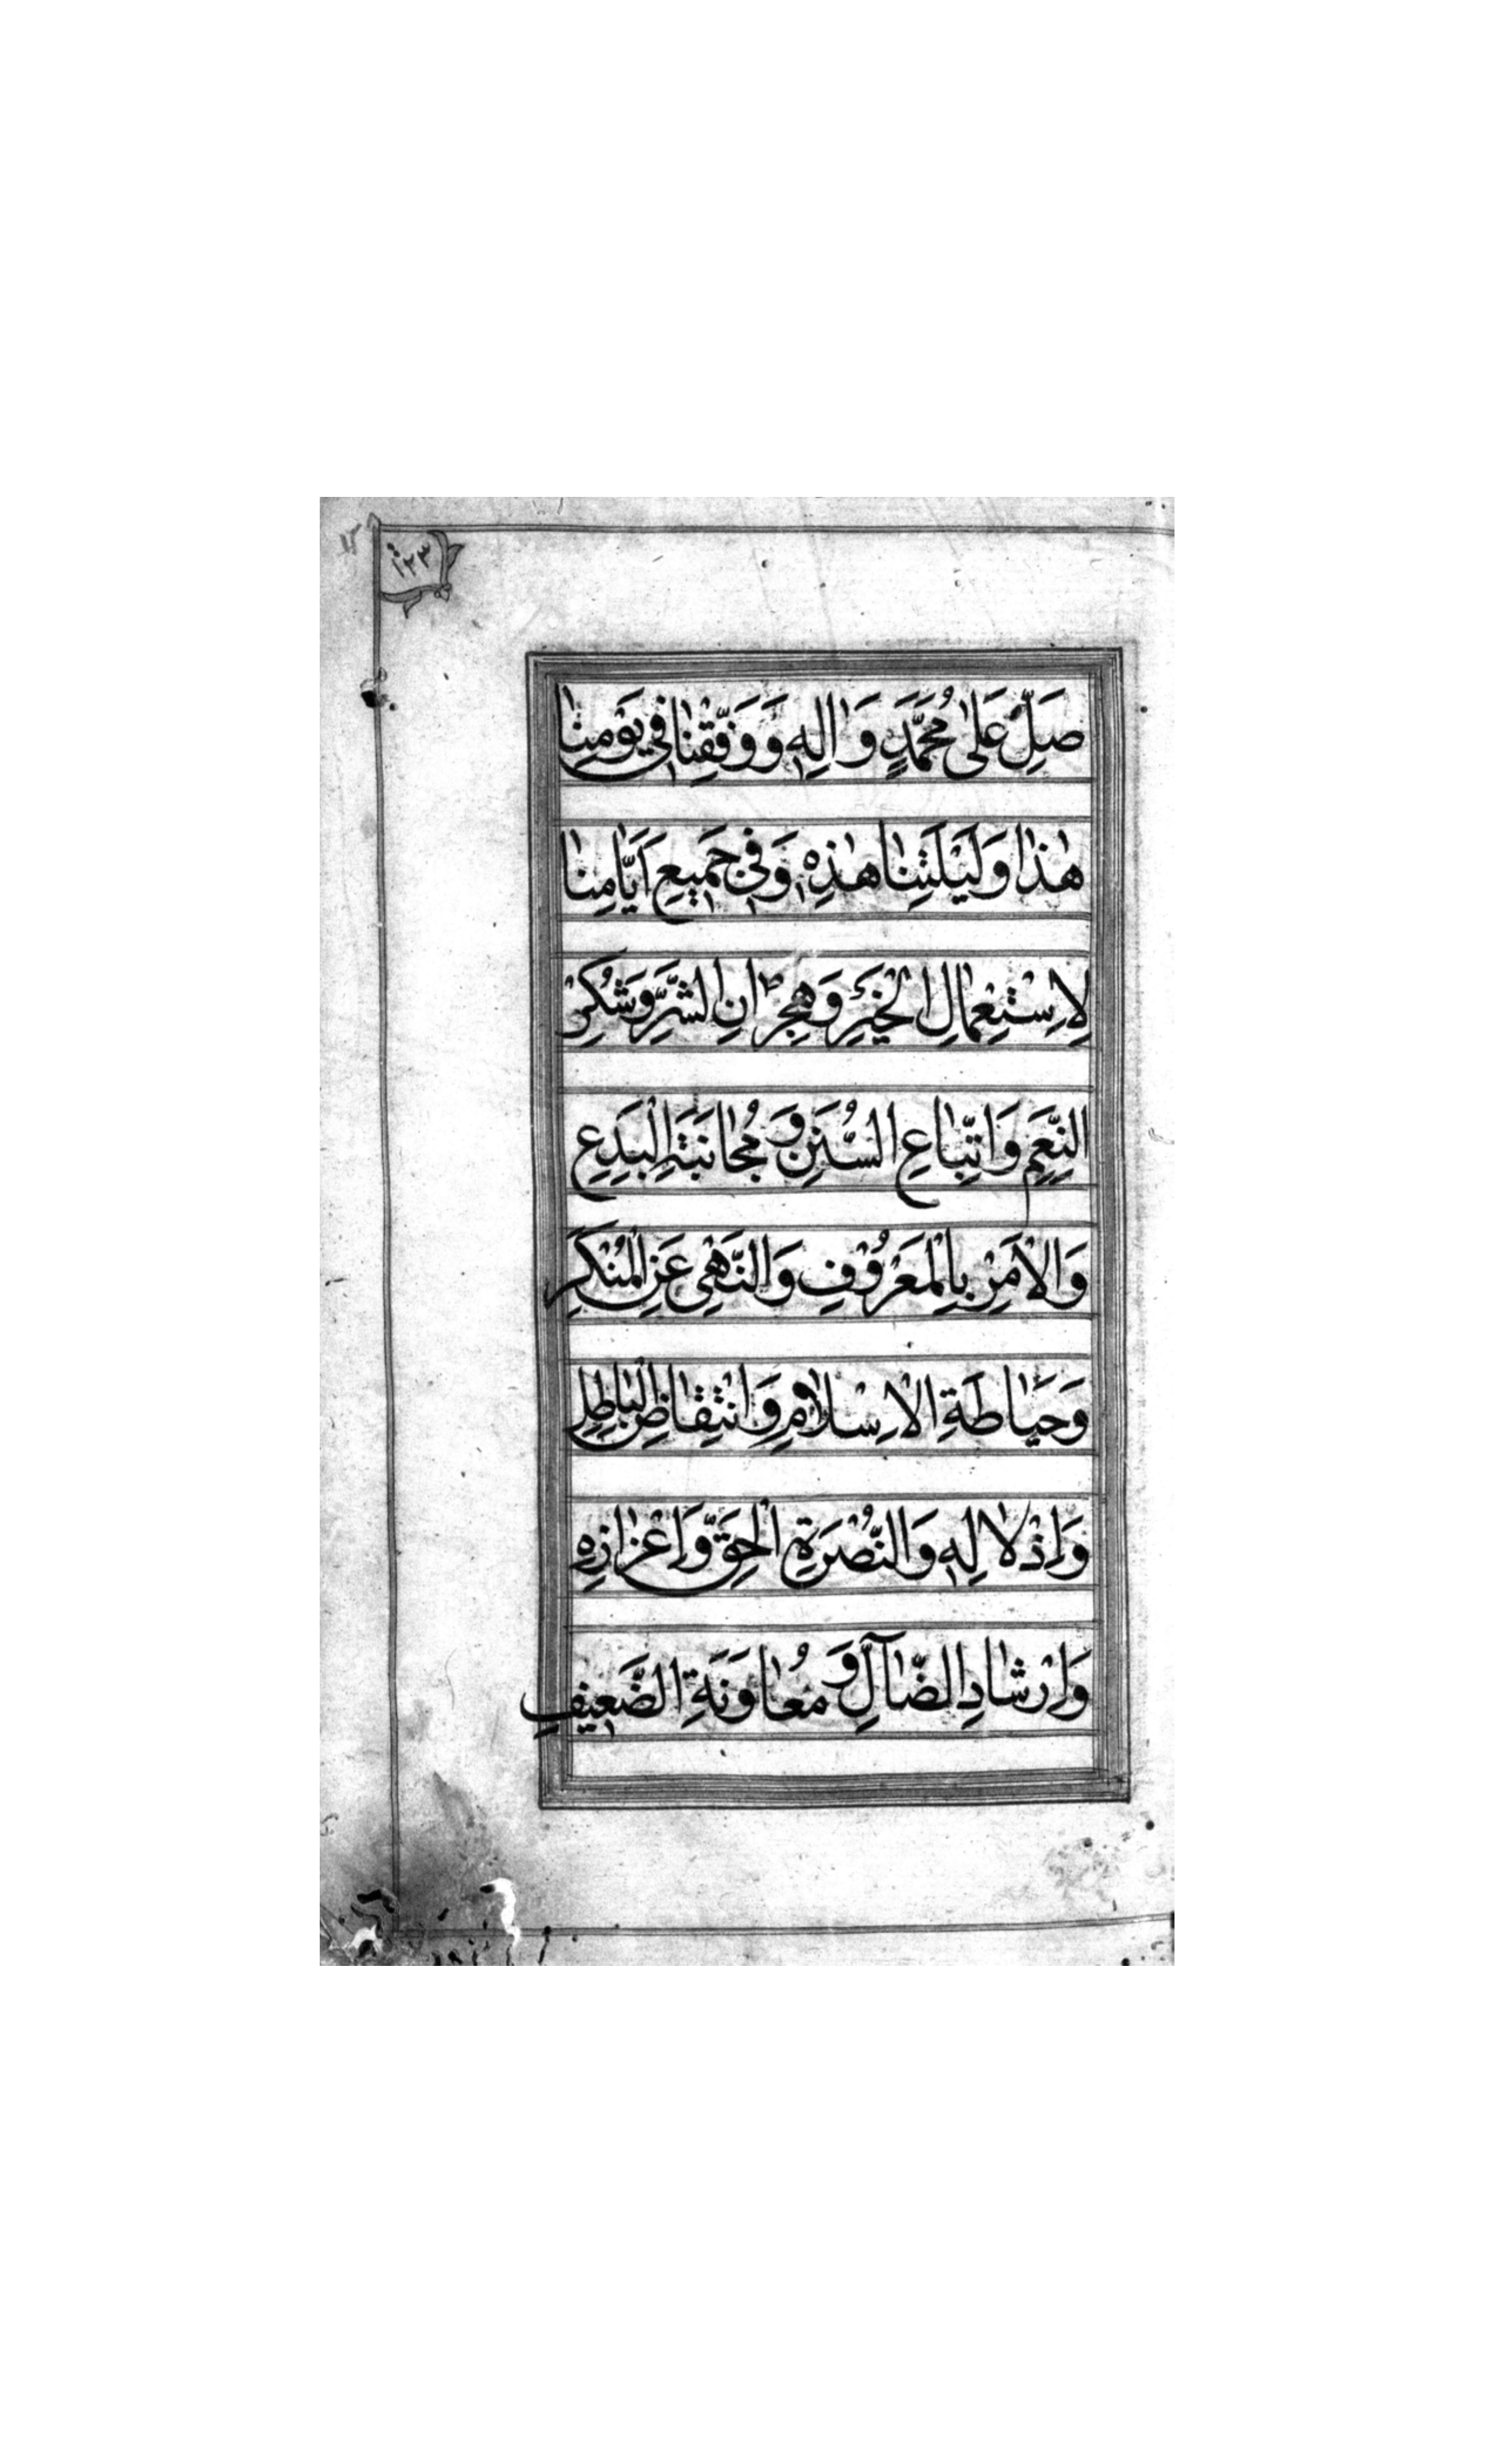 ١٢٣
صَلِّ عَلىٰ مُحَمَّدٍ وَاٰلِهٖ وَوَفِّقْنٰا فٖي يَوْمِنٰا
هٰذٰا وَلَيْلَتِنٰا هٰذِهٖ وَفٖي جَمٖيعِ اَيّٰامِنٰا
لِاسْتِعْمٰالِ الْخَيْرِ وَهِجْرٰانِ الشَّرِّ وَشُكْرِ
النِّعَمِ وَاتِّبٰاعِ السُّنَنِ وَمُجٰانَبَةِ الْبِدَعِ
وَالْاَمْرِ بِالْمَعْرُوْفِ وَالنَّهْيِ عَنِ الْمُنْكَرِ
وَحَيٰاطَةِ الْاِسْلٰامِ وَانْتِقٰاضِ الْبٰاطِلِ
وَاِذْلٰالِهٖ وَالنُّصْرَةِ الْحَقِّ وَاِعْزٰازِهِ
وَاِرْشٰادِ الضّٰآلِّ وَمُعٰاوَنَةِ الضَّعٖيفِ